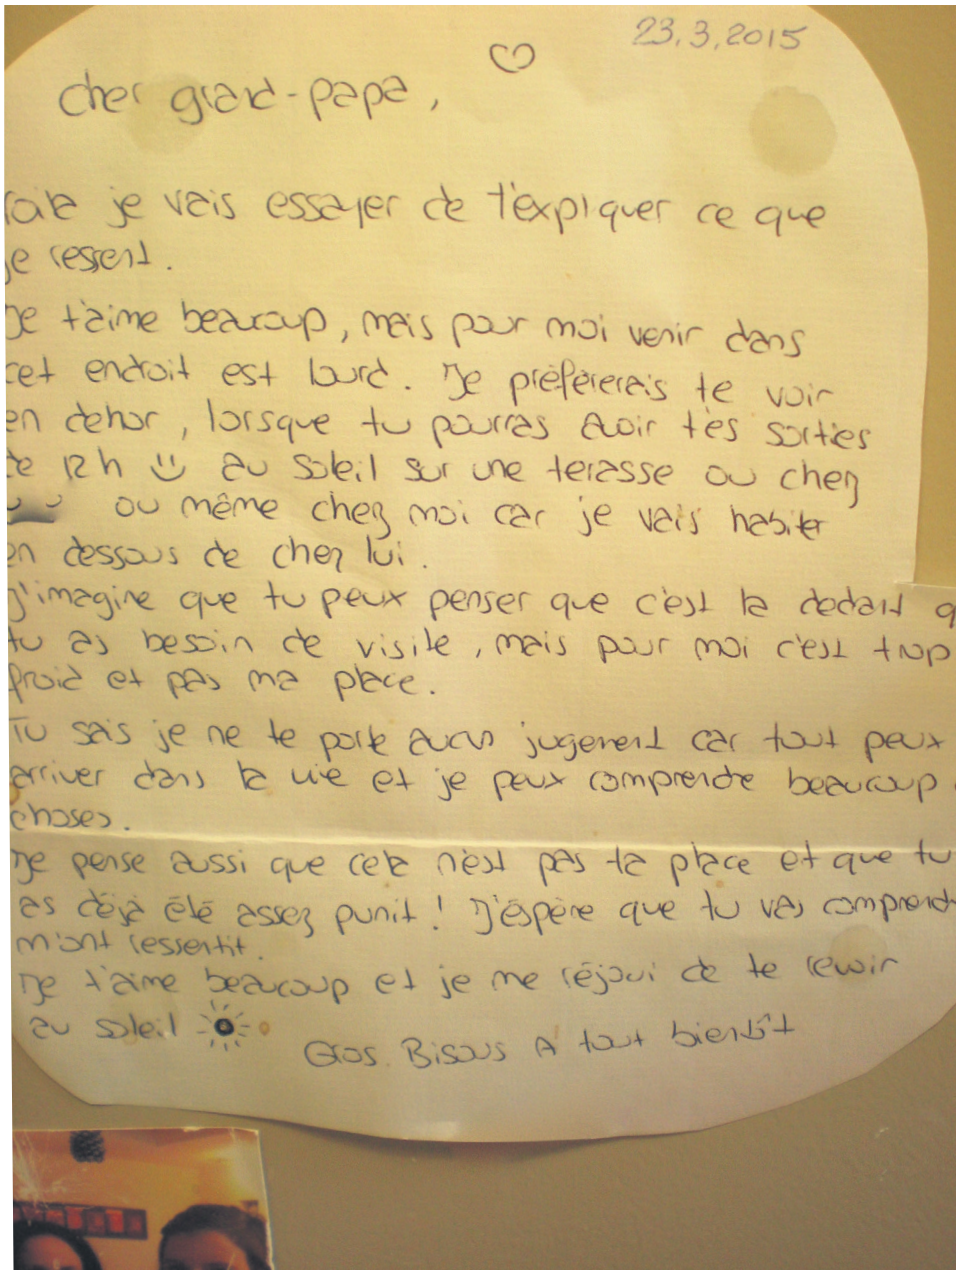 23.3.2015
cher grand-papa,
voila je vais essayer de t'expliquer ce que
je ressent.
Je t'aime beaucoup, mais pour moi venir dans
cet endroit est lourd. Je préfèrerais te voir
en dehor, lorsque tu pourras avoir tes sorties
de 12h au soleil sur une terasse ou chez
ou même chez moi car je vais habiter
en dessous de chez lui.
J'imagine que tu peux penser que c'est la dedant q
tu as besoin de visite, mais pour moi c'est trop
froid et pas ma place.
Tu sais je ne te porte aucun jugement car tout peux
arriver dans la vie et je peux comprendre beaucoup
choses.
Je pense aussi que cela n'est pas ta place et que tu
as déjà été assez punit! J'éspère que tu vas comprend
m'ont ressentit.
Je t'aime beaucoup et je me réjoui de te revoir
au soleil
Gros Bisous A tout bientôt